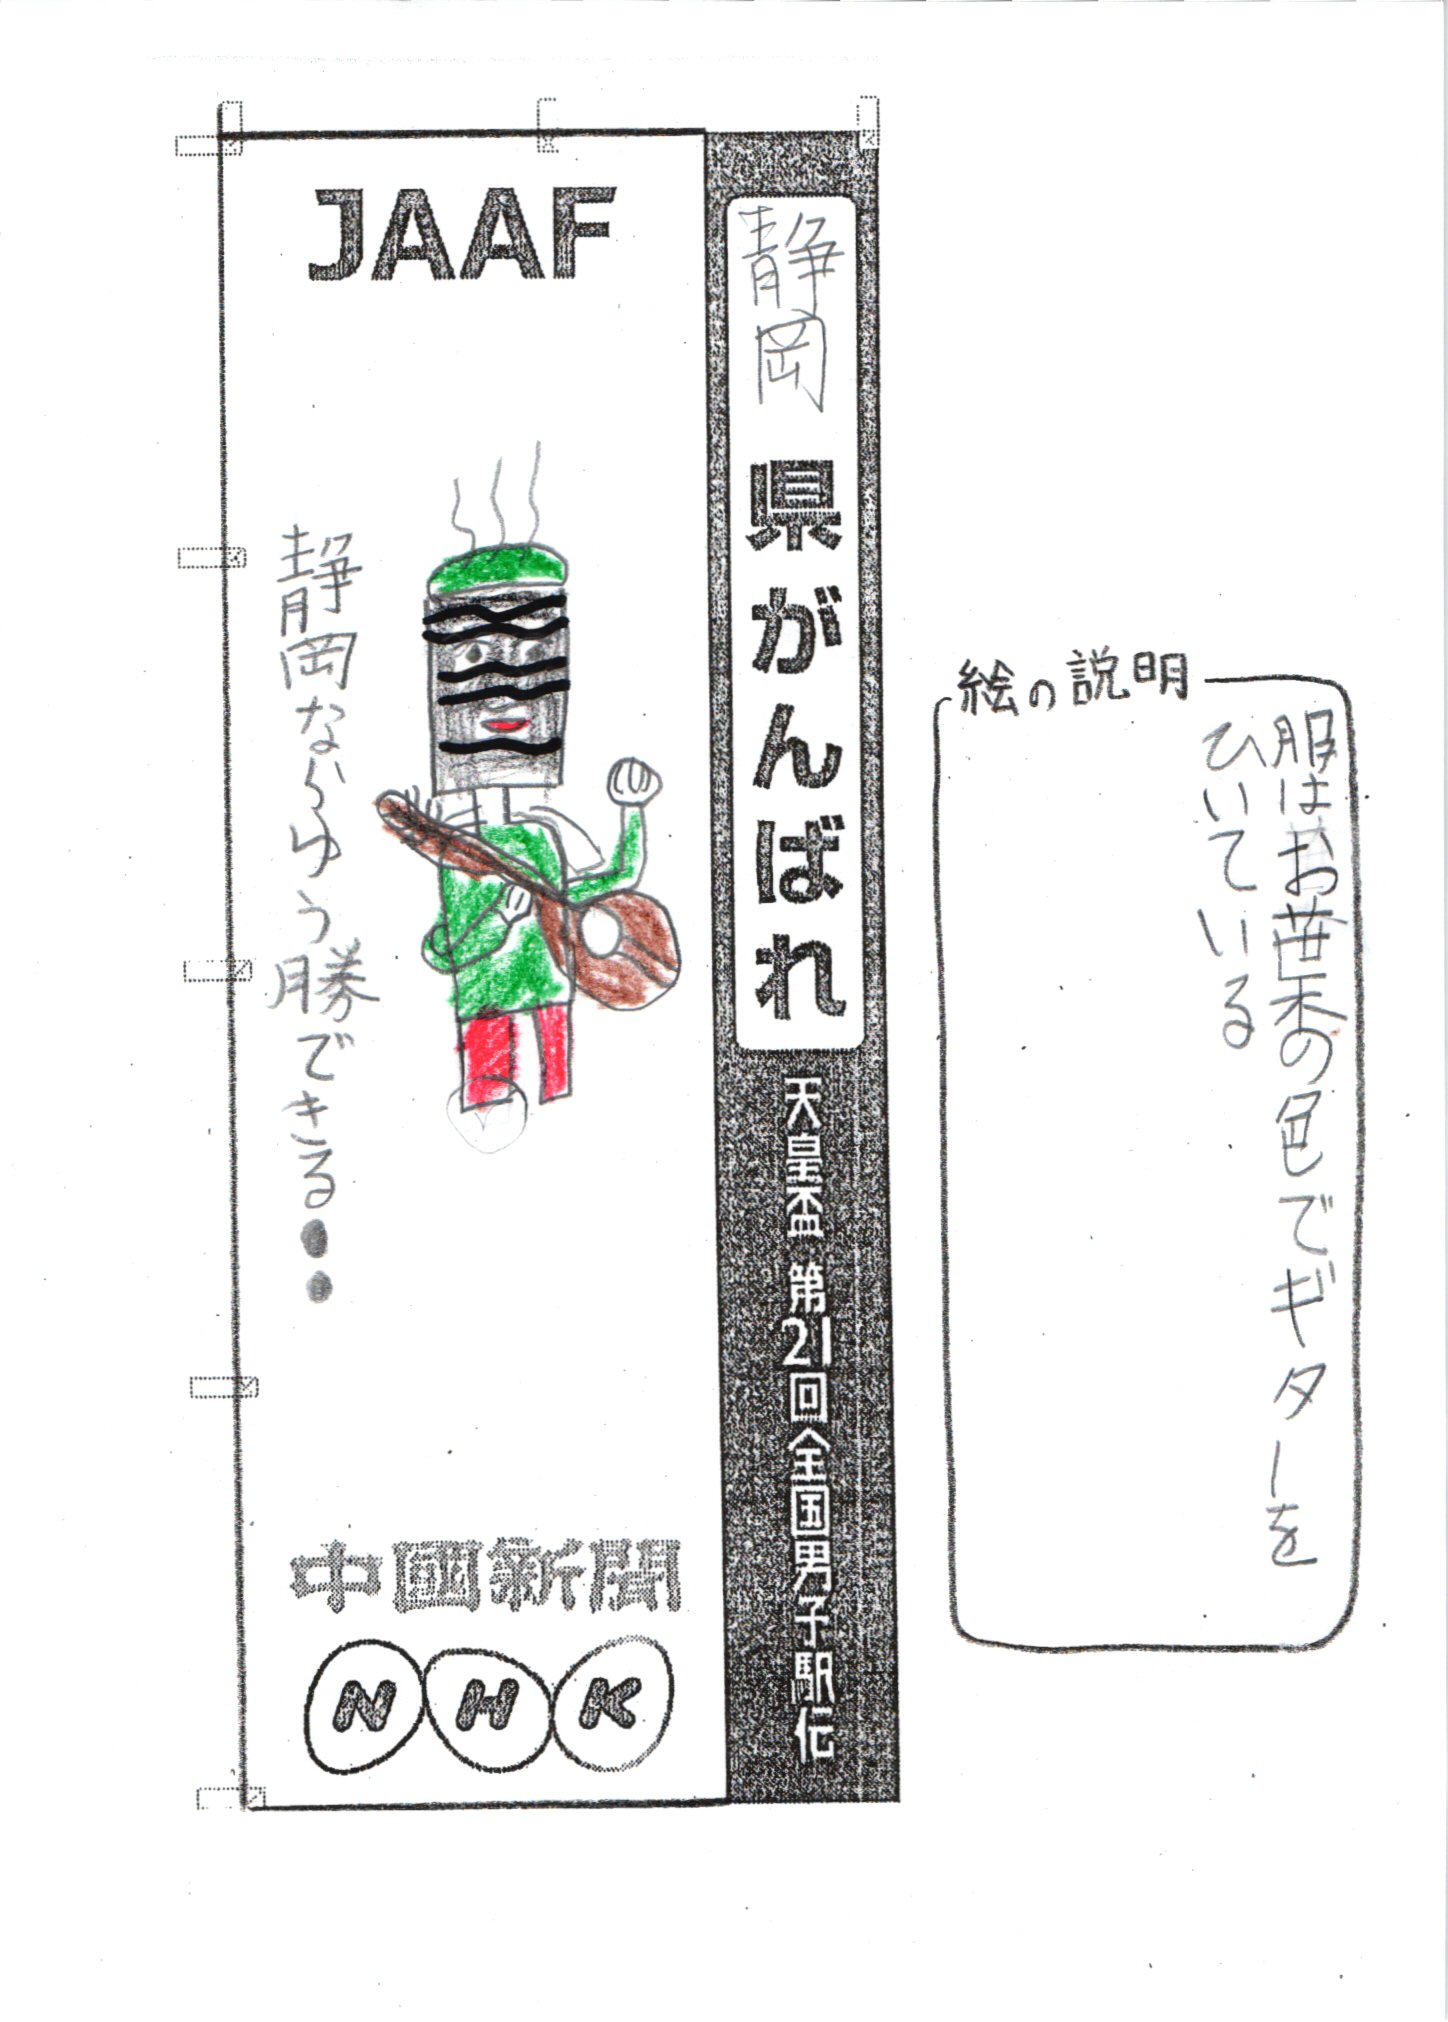 JAAF
静岡県がんばれ
天皇盃 第21回全国男子駅伝
静岡ならゆう勝できる
中國新聞
NHK
絵の説明
服はお茶の色でギターを
ひいている